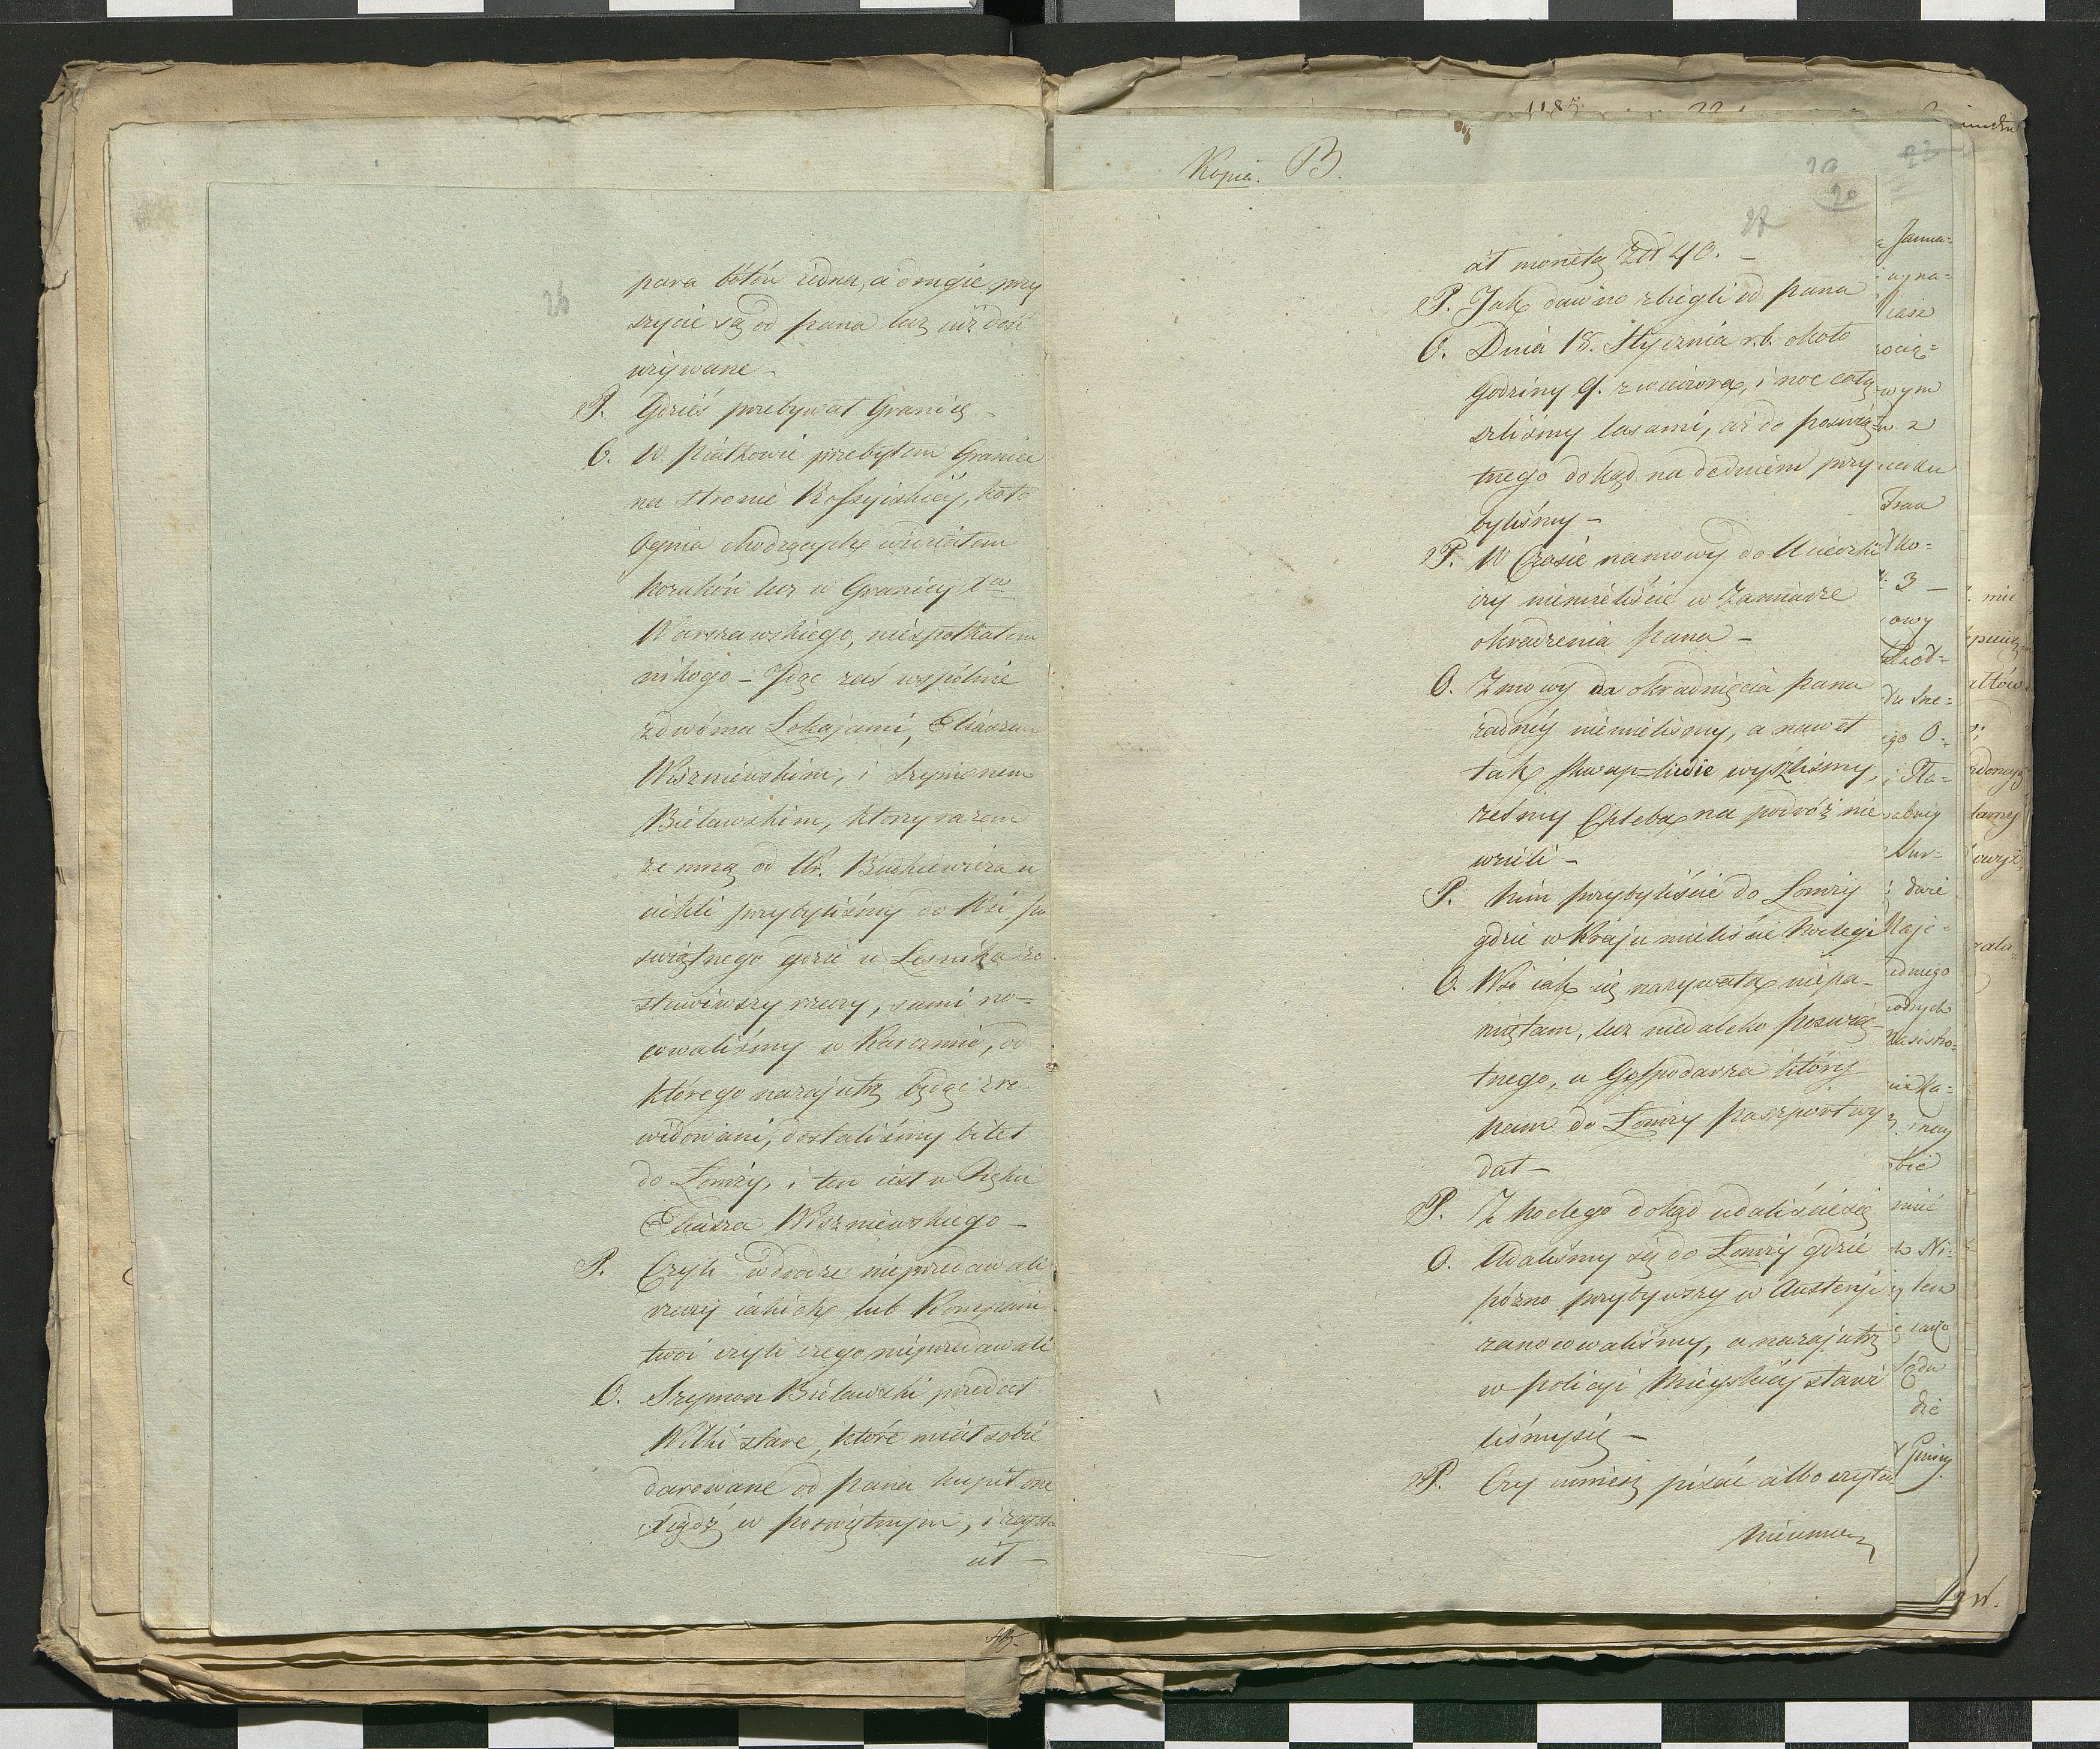 26
para bótów iedna, a drugie przy
szycie są od pana lecz iuż dość
używane —
P. Gdzieś przebywał Granicę —
O. W Piątkowie przebyłem Granice
na stronie Rossyiskiéy, koło
Ognia chodzących widziałem
kozaków lecz w Granicy Xa
Warszawskiego, niespotkałem
nikogo — Idąc zaś wspólnie
zdwóma Lokajami, Eliaszem
Wiszniewskim, i Szymonem
Bielawskim, którzy razem
ze mną od W. Buchiewicza u
ciekli przybyliśmy do Wsi po
świętnego gdzie u Lesnika zo
stawiwszy rzeczy, sami no=
cowaliśmy w Karczmie, od
którego nazajutrz będąc zre-
widowani, dostaliśmy bilet
do Łomży, i ten iest w Ręku
Eliasza Wiszniewskiego —
P. Czyli wdrodze nieprzedawali
rzeczy iakich lub Kompani
twoi czyli czego nieprzedawali
O. Szymon Bielawski przedał
Wilki stare, które miał sobie
darowane od pana kupił one
Xiądz w poswiętnym, i zapła
ał —
Kopia. B.
20
20
23
27
ał monetą Zł 40. —
P. Jak dawno zbiegli od pana
O. Dnia 18. Stycznia r.b. około
Godziny 9. zwieczora, i noc całą
szliśmy lasami, aż do poswię
tnego dokąd nadedniem przy
byliśmy —
P. W Czasie namowy do Ucieczki
czy niemieliście w Zamiarze
okradzenia pana —
O. Zmowy do okradnięcia pana
żadnéy niemieliśmy, a nawet
tak skwapliwie wyszliśmy,
żeśmy Chleba na podróż nie
wzieli —
P. Nim przybyliście do Łomży
gdzie w Kraju mieliście Noclegi
O. Wsi iak się nazywała niepa-
miętam, lecz niedaleko poswię-
tnego, u Gospodarza który
nam do Łomży paszport wy
dał —
P. Z noclego dokąd udaliściesię
O. Udaliśmy się do Łomży gdzie
pózno przybywszy w Austeryi
zanocowaliśmy, a nazajutrz
w policyi Mieyskiéy stawi
liśmysię —
P. Czy umiesz pisać albo czytać
Nieumiem